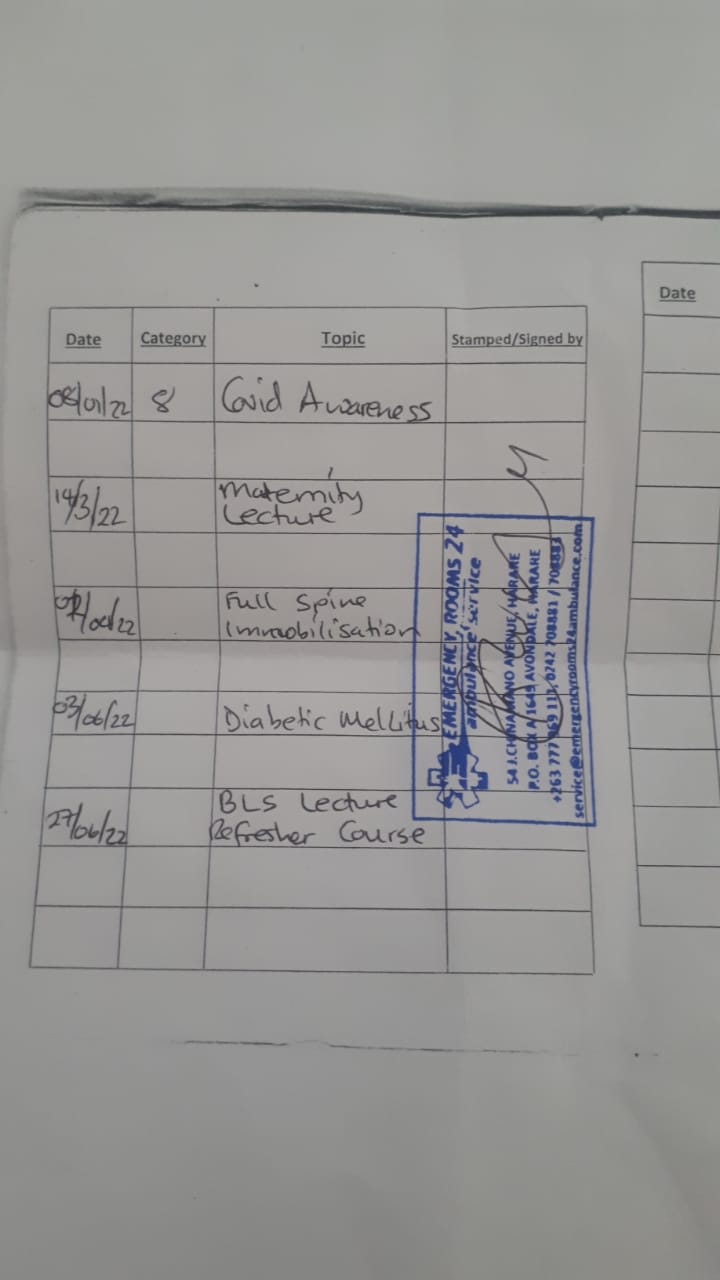 Date Category Topic Stamped/Signed by
08/01/22 8 Covid Awareness
14/3/22 Maternity
Lecture
Full Spine
Immobilisation
03/06/22 Diabetic Mellitus
27/06/22 BLS Lecture
Refresher Course
EMERGENCY ROOMS 24
ambulance service
54 J.CHINAMANO AVENUE, HARARE
P.O. BOX A1645 AVONDALE, HARARE
+263 777 0242 708881 /
service@emergencyrooms24ambulance.com
Date